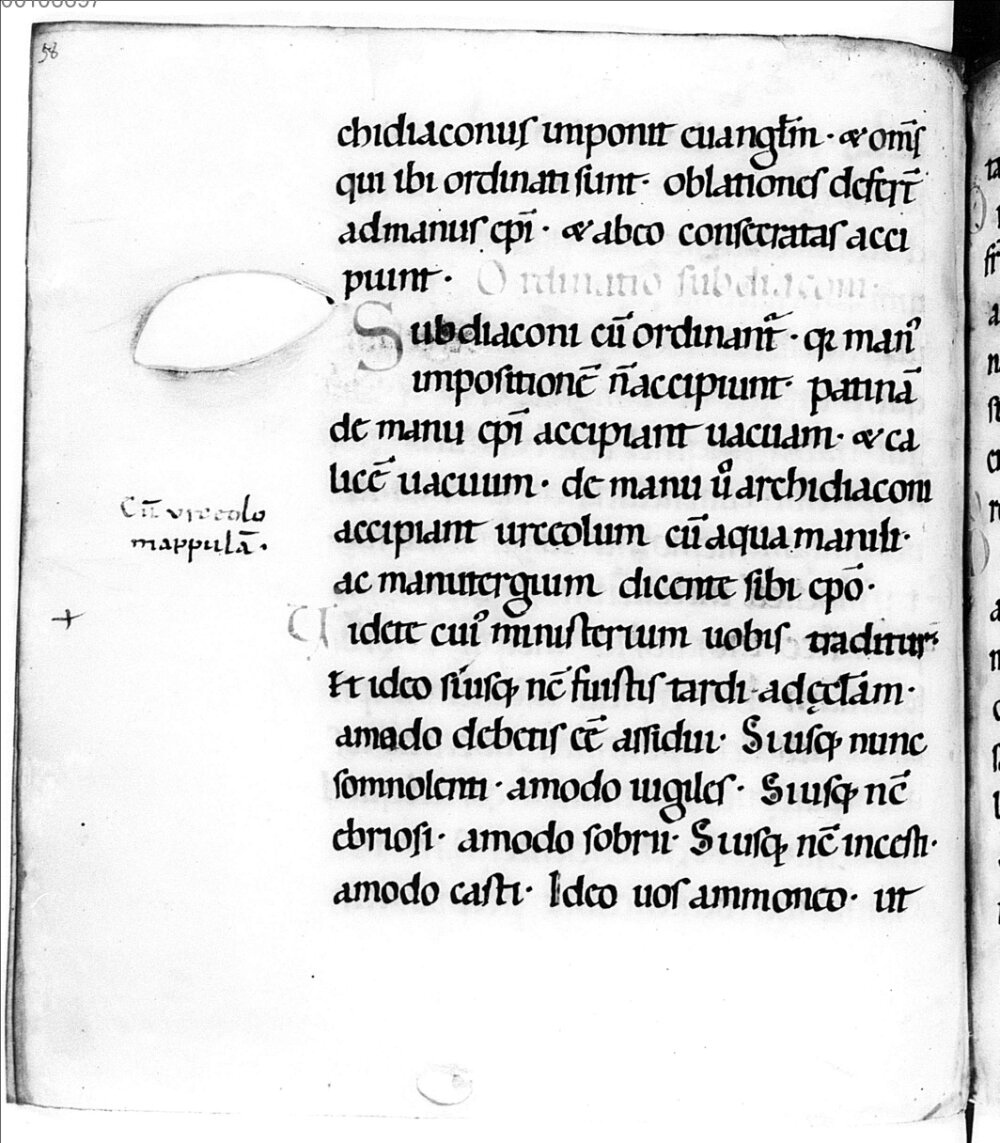 58
chidiaconus imponit euangl̄m · & om̄s
qui ibi ordinati sunt · oblationes defer̄t
ad manus ep̄i · & ab eo consecratas acci
piunt · Ordinatio subdiaconi ·
Subdiaconi cū ordinant̄ · q̨ man᾽
impositionē n̄ accipiunt · patinā
de manu ep̄i accipiant uacuam · & ca
licē uacuum · de manu ů archidiaconi
accipiant urceolum cū aqua manili ·
ac manutergium dicente sibi ep̄o ·
Videte cui᾽ ministerium uobis traditur ·
Et ideo si usq; nc̄ fuistis tardi ad ęccl̄am ·
amodo debetis ēē assidui · Si usq; nunc
somnolenti · amodo uigiles · Si usq; nc̄
ebriosi · amodo sobrii · Si usq; nc̄ incesti ·
amodo casti · Ideo uos ammoneo · ut
Cū urceolo
mappulā ·